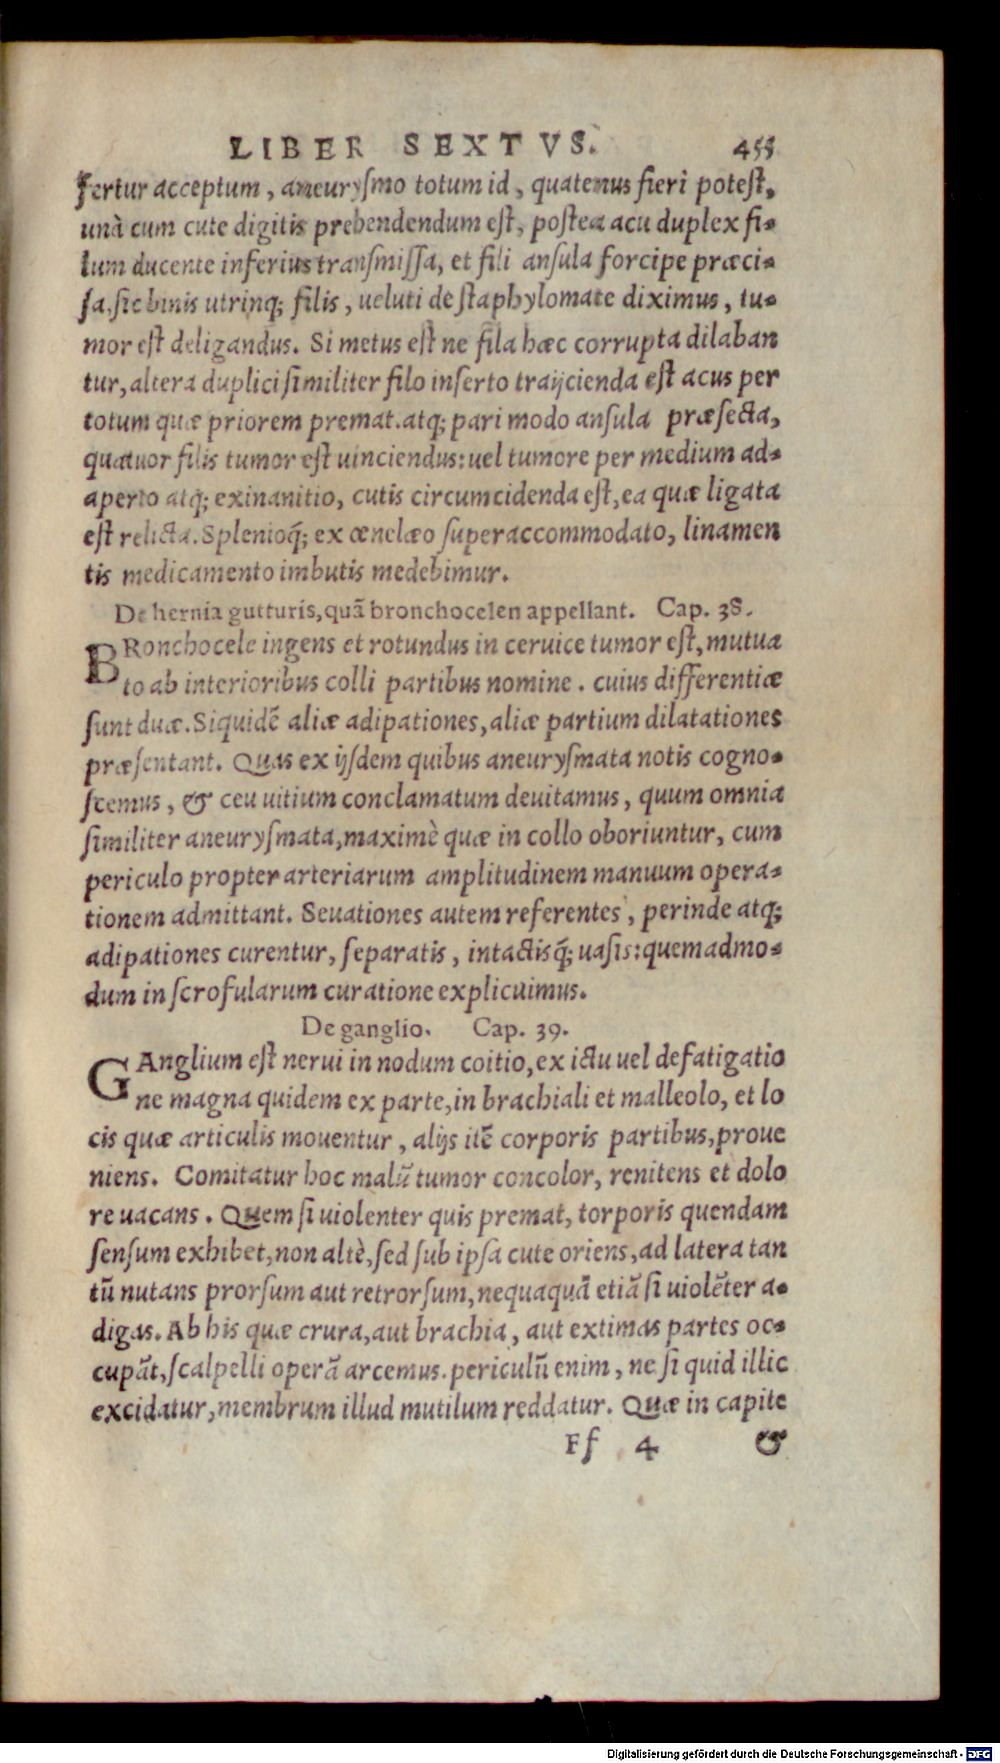 LIBER SEXTVS. 455
fertur acceptum, aneuryſmo totum id, quatenus fieri poteſt,
unà cum cute digitis prehendendum eſt, poſtea acu duplex fi-
lum ducente inferius tranſmiſſa, et fili anſula forcipe præci-
ſa, ſic binis utrinq; filis, ueluti de ſtaphylomate diximus, tu-
mor eſt deligandus. Si metus eſt ne fila hæc corrupta dilaban
tur, altera duplici ſimiliter filo inſerto traijcienda eſt acus per
totum quæ priorem premat. atq; pari modo anſula præſecta,
quatuor filis tumor eſt uinciendus: uel tumore per medium ad-
aperto atq; exinanitio, cutis circumcidenda eſt, ea quæ ligata
eſt relicta. Splenioq́; ex œnelæo ſuperaccommodato, linamen
tis medicamento imbutis medebimur.
De hernia gutturis, quã bronchocelen appellant. Cap. 38.
BRonchocele ingens et rotundus in ceruice tumor eſt, mutua
to ab interioribus colli partibus nomine. cuius differentiæ
ſunt duæ. Siquidẽ aliæ adipationes, aliæ partium dilatationes
præſentant. Quas ex ijſdem quibus aneuryſmata notis cogno-
ſcemus, & ceu uitium conclamatum deuitamus, quum omnia
ſimiliter aneuryſmata, maximè quæ in collo oboriuntur, cum
periculo propter arteriarum amplitudinem manuum opera-
tionem admittant. Seuationes autem referentes, perinde atq;
adipationes curentur, ſeparatis, intactisq́; uaſis: quemadmo-
dum in ſcrofularum curatione explicuimus.
De ganglio. Cap. 39.
GAnglium eſt nerui in nodum coitio, ex ictu uel defatigatio
ne magna quidem ex parte, in brachiali et malleolo, et lo
cis quæ articulis mouentur, alijs itẽ corporis partibus, proue
niens. Comitatur hoc malũ tumor concolor, renitens et dolo
re uacans. Quem ſi uiolenter quis premat, torporis quendam
ſenſum exhibet, non altè, ſed ſub ipſa cute oriens, ad latera tan
tũ nutans prorſum aut retrorſum, nequaquã etiã ſi uiolẽter a-
digas. Ab his quæ crura, aut brachia, aut extimas partes oc-
cupãt, ſcalpelli operã arcemus. periculũ enim, ne ſi quid illic
excidatur, membrum illud mutilum reddatur. Quæ in capite
Ff 4 &
Digitalisierung gefördert durch die Deutsche Forschungsgemeinschaft - DFG